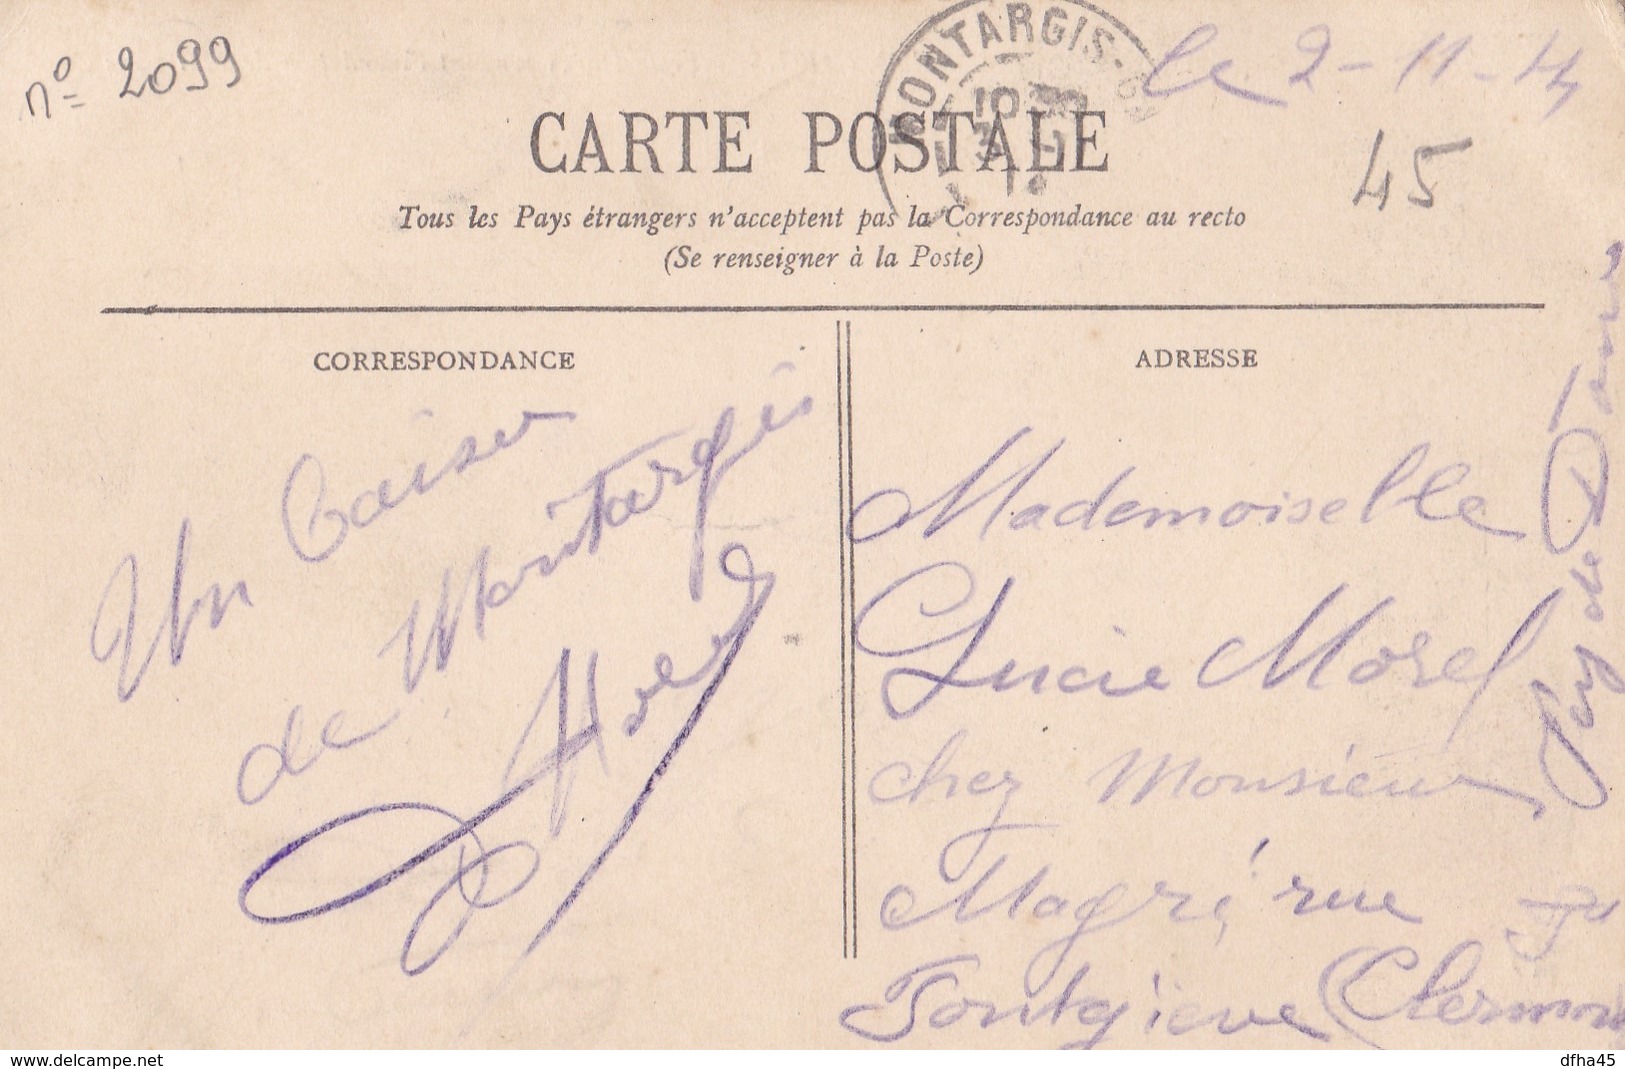 nº 2099
MONTARGIS
le 2-11-14
CARTE POSTALE
45
Tous les Pays étrangers n'acceptent pas la Correspondance au recto
(Se renseigner à la Poste)
CORRESPONDANCE
Un baiser
de Montargis
ADRESSE
Mademoiselle
Lucie Morel
chez Monsieur
Magré rue
Fontgieve (Clermont
Puy de Dôme
www.delcampe.net
dfha45